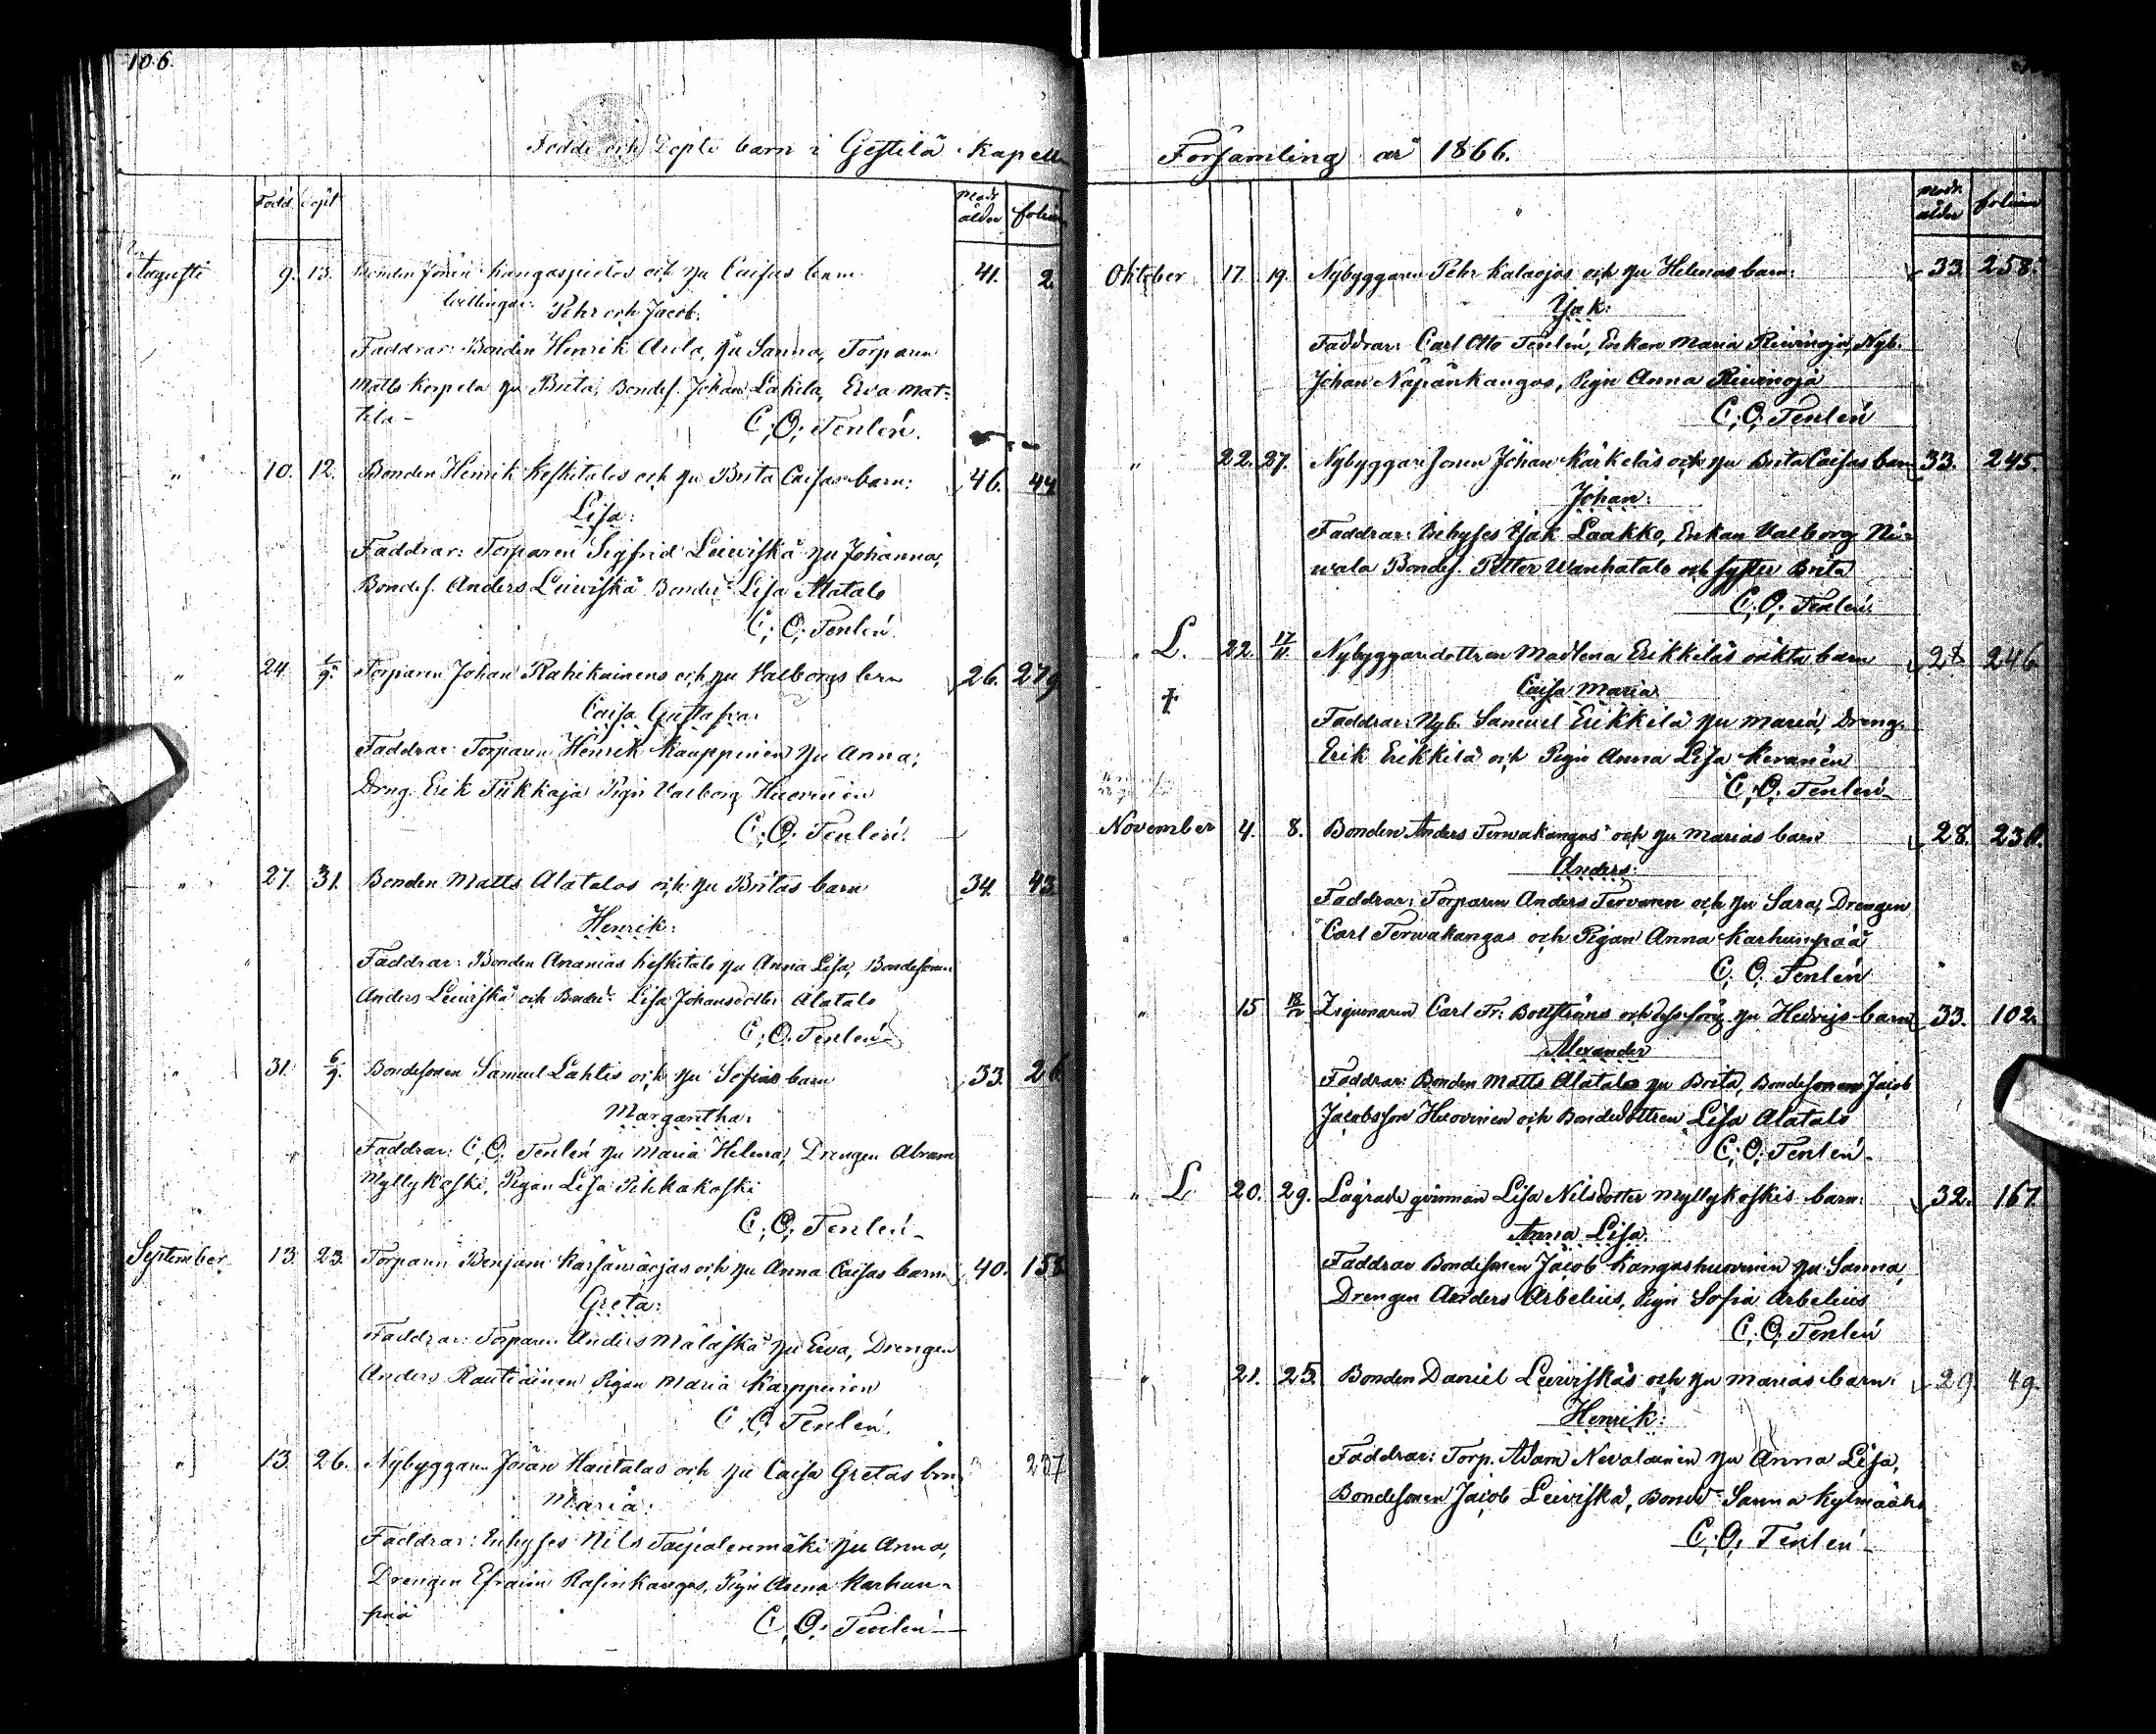 106.
Födde och Döpte barn i Gestilä Kapell
Född döpt modr ålder folium
Augusti 9. 13. Bonden Jöran Kangaspietos och hu Caisas barn 41. 2.
tvillingar: Pehr och Jacob.
Faddrar: Bonden Henrik Aula, hu Sanna, Torparen
Matts Korpela hu Brita, Bondes. Johan Lakela, Eva Mat-
tila -
C; O; Tenlén.
" 10. 12. Bonden Henrik Keskitalos och hu Brita Caisas barn: 46. 44
Lisa:
Faddrar: Torparen Sigfrid Leiviskä hu Johanna,
Bondes. Anders Leiviskä Bonded. Lisa Alatalo
C; O; Tenlén.
" 24. 1/9. Torparen Johan Rahikainens och hu Valborgs brn 26. 279
Caisa Gustafva:
Faddrar: Torparen Henrik Kauppinen hu Anna;
Dreng. Erik Tiikkaja Pign Valborg Huovinen
C; O; Tenlén.
" 27. 31. Bonden Matts Alatalos och hu Britas barn 34. 43
Henrik:
Faddrar: Bonden Ananias Keskitalo hu Anna Lisa, Bondesonen
Anders Leiviskä och Bonded. Lisa Johansdotter Alatalo
C; O; Tenlén
" 31. 6/9. Bondesonen Samuel Lahtis och hu Sofias barn 33. 26
Margaretha:
Faddrar: C, O, Tenlén hu Maria Helena, Drengen Abram
Myllykoski, Pigan Lisa Pihkakoski
C; O; Tenlén -
September 13. 23. Torparen Benjam Kärsänoejas och hu Anna Caisas barn 40. 158
Greta:
Faddrar: Torparen Anders Mäläskä hu Eva, Drengen
Anders Rautiainen Pigan Maria Karppinen
C; O; Tenlén.
" 13. 26. Nybyggaren Jöran Hautalas och hu Caisa Gretas brn 237
Maria:
Faddrar: Inhyses Nils Taipalenmäki hu Anna,
Drengen Efraim Rasinkangas, Pign Anna Karhun-
pää
C; O; Tenlén -
Församling år 1866.
modr. ålder folium
Oktober 17. 19. Nybyggaren Pehr Kalaojas och hu Helenas barn: 33. 258.
Isak:
Faddrar: Carl Otto Tenlén, Enkan Maria Reivinoja, Nyb.
Johan Näpänkangas, Pign Anna Reivinoja
C; O; Tenlén
" 22. 27. Nybyggaresonen Johan Kärkeläs och hu Brita Caisas barn 33. 245.
Johan:
Faddrar: Inhyses Isak Laakko, Enkan Valborg Ni-
vala Bondes. Petter Wanhatalo och syster Brita
C; O; Tenlén.
" L. 22. 17/11 Nybyggaredottren Madlena Erikkiläs oäkta barn 28 246.
Caisa Maria
Faddrar: Nyb. Samuel Erikkilä hu Maria, Dreng.
Erik Erikkilä och Pign Anna Lisa Keränen
C; O; Tenlén -
November 4. 8. Bonden Anders Tervakangas och hu Marias barn 28.
Anders:
Faddrar: Torparen Anders Tervonen och hu Sara, Drengen
Carl Tervakangas och Pigan Anna Karhumpää
C; O; Tenlén
" 15 18/12 Zigenaren Carl Fr. och hu Hedvigs barn 33. 102.
Alexander
Faddrar: Bonden Matts Alatalos hu Brita, Bondesonen Jacob
Jacobsson Huovinen och Bondedottren Lisa Alatalo
C; O; Tenlén -
" L 20. 29. Lägrade qvinnan Lisa Nilsdotter Myllykoskis barn: 32. 167.
Anna Lisa.
Faddrar Bondesonen Jacob Kangashuovinen hu Sanna,
Drengen Anders Arbelius, Pign Sofia Arbelius
C; O; Tenlén
" 21. 25. Bonden Daniel Leiviskäs och hu Marias barn: 29. 49.
Henrik:
Faddrar: Torp. Adam Nevalainen hu Anna Lisa,
Bondesonen Jacob Leiviskä, Bonded Sanna Kylmäaho
C; O; Tenlén -